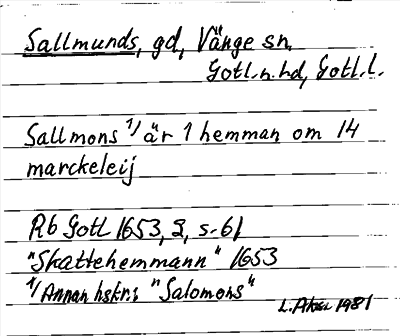 Sallmunds, gd, Vänge sn,
Gotl. n. hd, Gotl. l.
Sallmons 1/ är 1 hemman om 14
marckeleij
Rb Gotl 1653, 2, s. 61
"Skattehemmann" 1653
1/ Annan hskr: "Salomons"
L. 1981